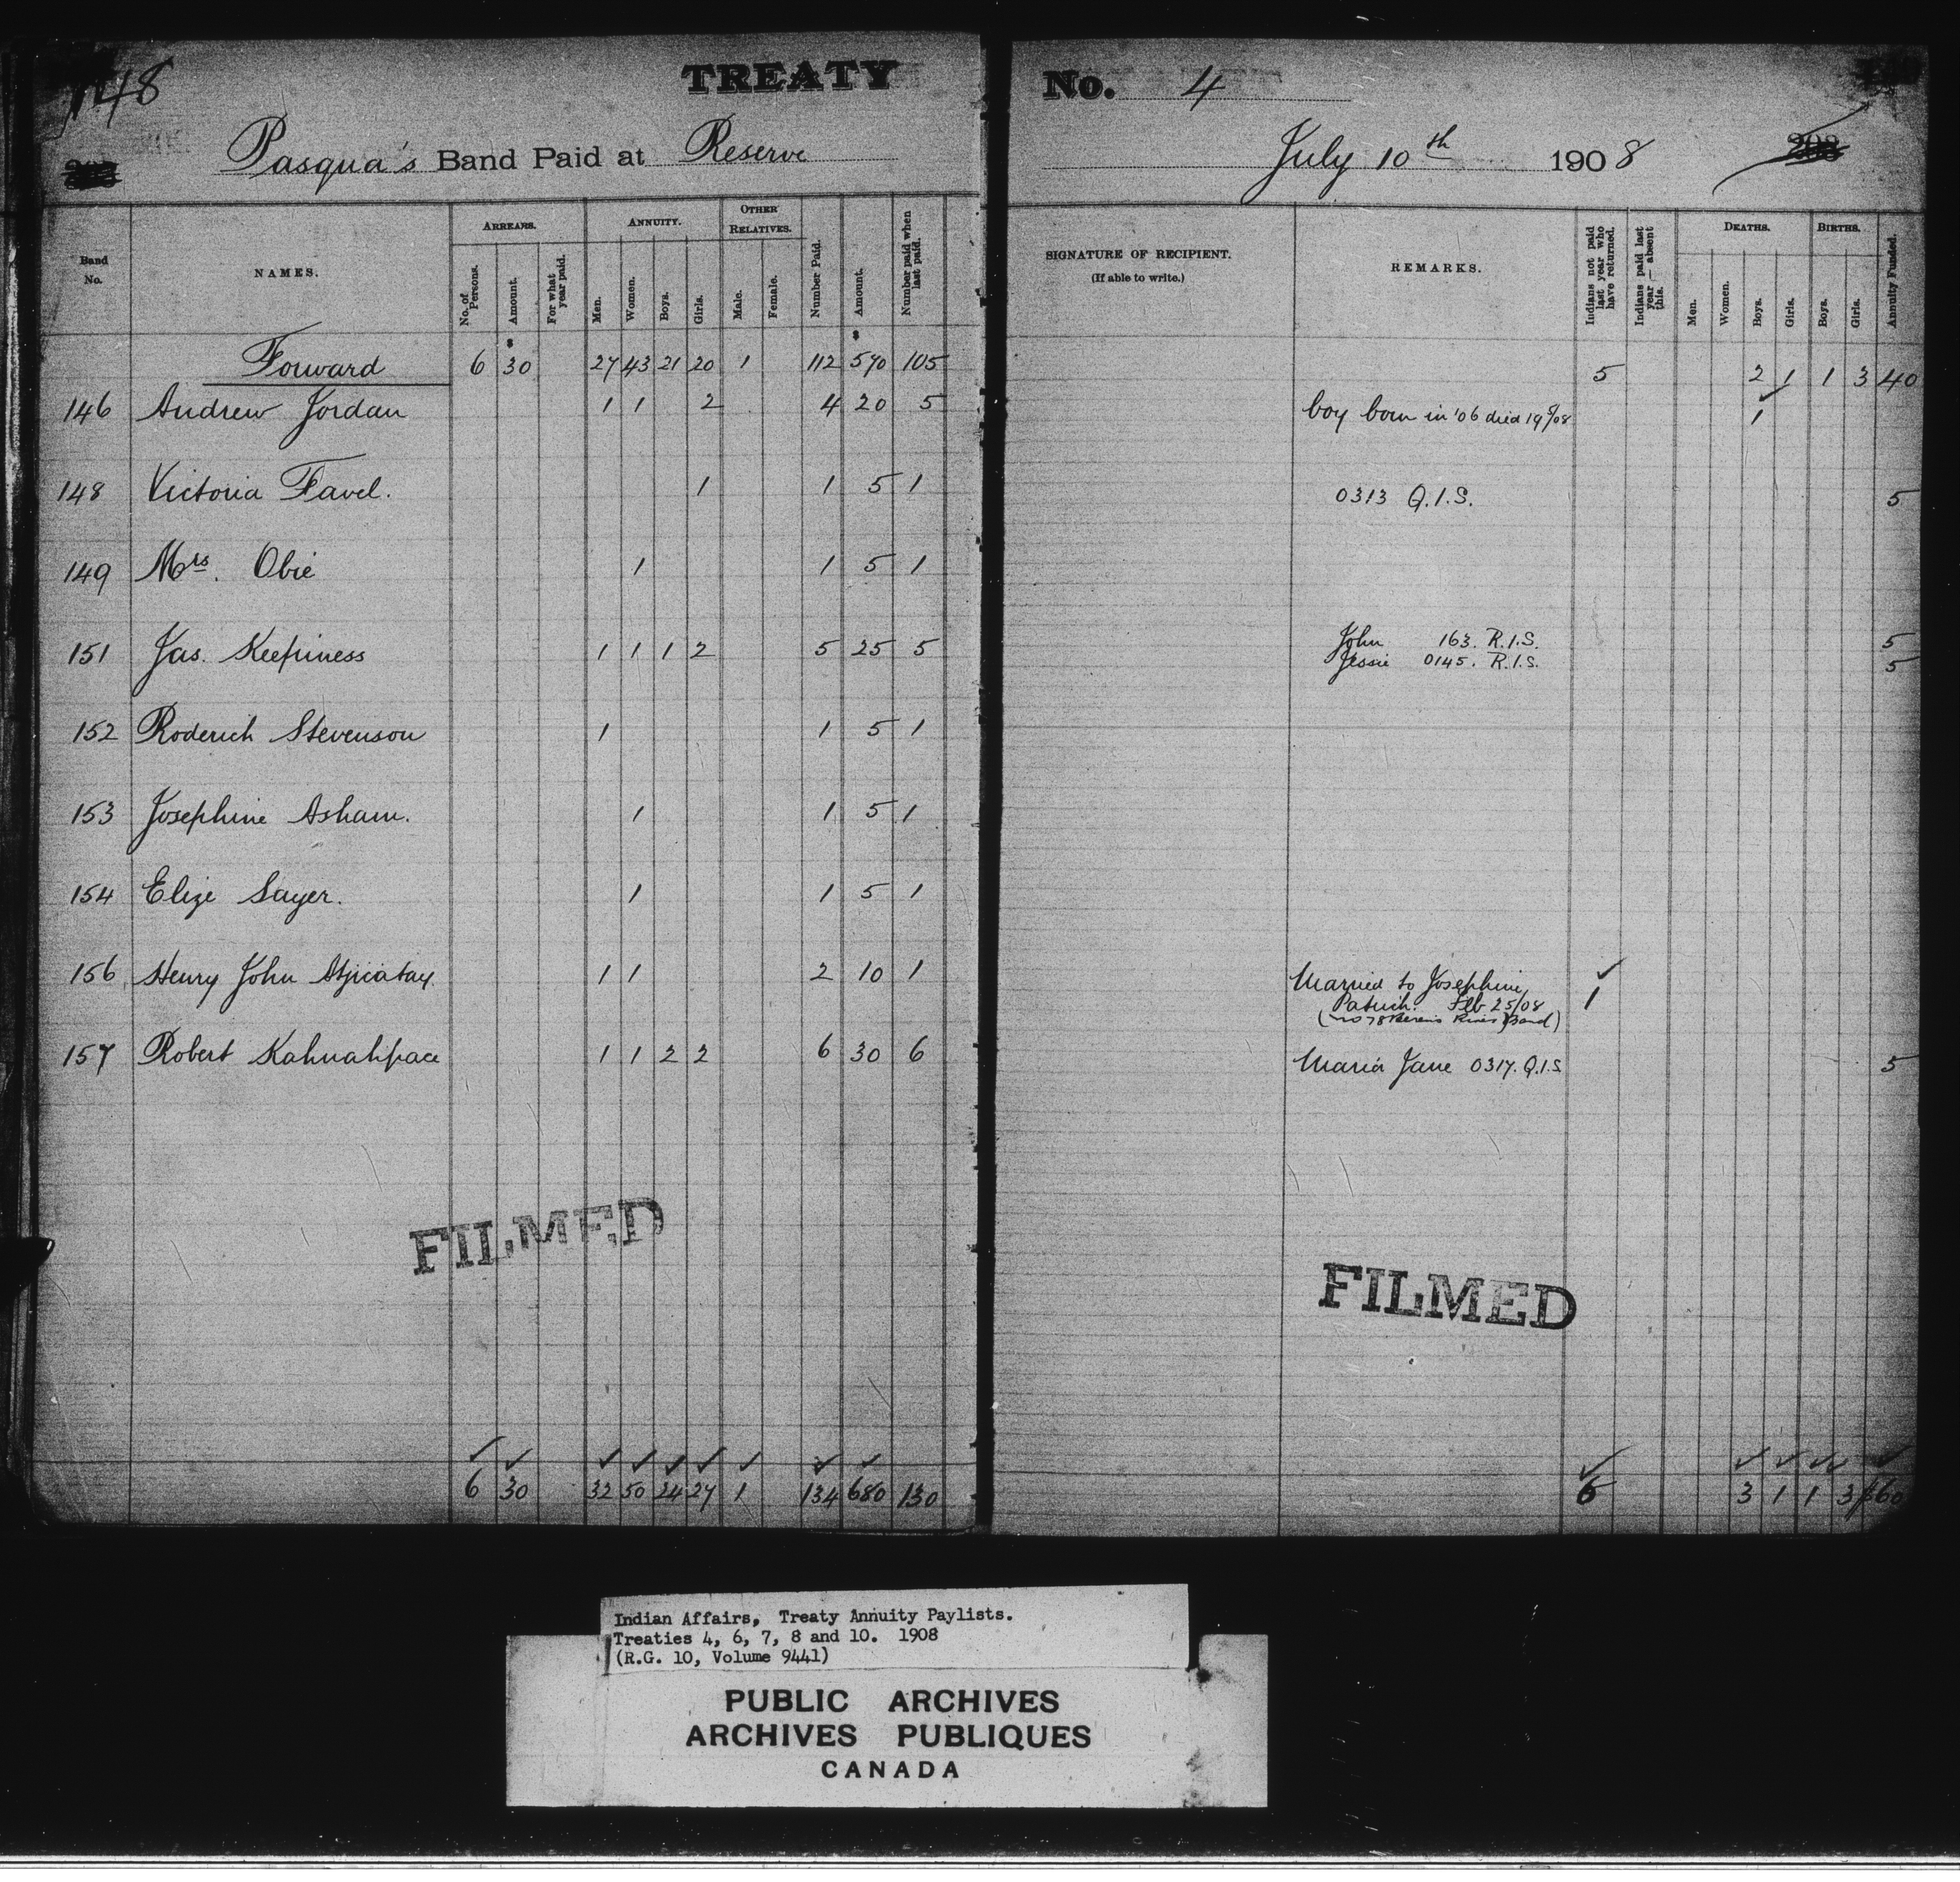 148
TREATY No. 4
Pasqua's Band Paid at Reserve July 10th 1908
Band No. NAMES. ARREARS. ANNUITY. OTHER RELATIVES. Number Paid. Amount. Number paid when last paid.
No. of Persons. Amount. For what year paid. Men. Women. Boys. Girls. Male. Female.
SIGNATURE OF RECIPIENT. (If able to write.) REMARKS. Indians not paid last year who have returned. Indians paid last year — absent this. DEATHS. BIRTHS. Annuity Funded.
Men. Women. Boys. Girls. Boys. Girls.
$ $
Forward 6 30 27 43 21 20 1 112 570 105 5 2 1 1 3 40
146 Andrew Jordan 1 1 2 4 20 5 boy born in '06 died 1
148 Victoria Favel. 1 1 5 1 0313 Q.I.S. 5
149 Mrs. Obie 1 1 5 1
151 Jas. Keepiness 1 1 1 2 5 25 5 John 163. R.I.S. 5
Jessie 0145. R.I.S. 5
152 Roderich Stevenson 1 1 5 1
153 Josephine Asham. 1 1 5 1
154 Elize Sayer. 1 1 5 1
156 Henry John 1 1 2 10 1 Married to Josephine ✓
Feb 25/08 1
River Band)
157 Robert Kahnahpace 1 1 2 2 6 30 6 Maria Jane 0317. Q.I.S 5
FILMED
FILMED
✓ ✓ ✓ ✓ ✓ ✓ ✓ ✓ ✓ ✓ ✓ ✓ ✓ ✓ ✓
6 30 32 50 24 27 1 134 680 130 6 3 1 1 3 $60
Indian Affairs, Treaty Annuity Paylists.
Treaties 4, 6, 7, 8 and 10. 1908
(R.G. 10, Volume 9441)
PUBLIC ARCHIVES
ARCHIVES PUBLIQUES
CANADA